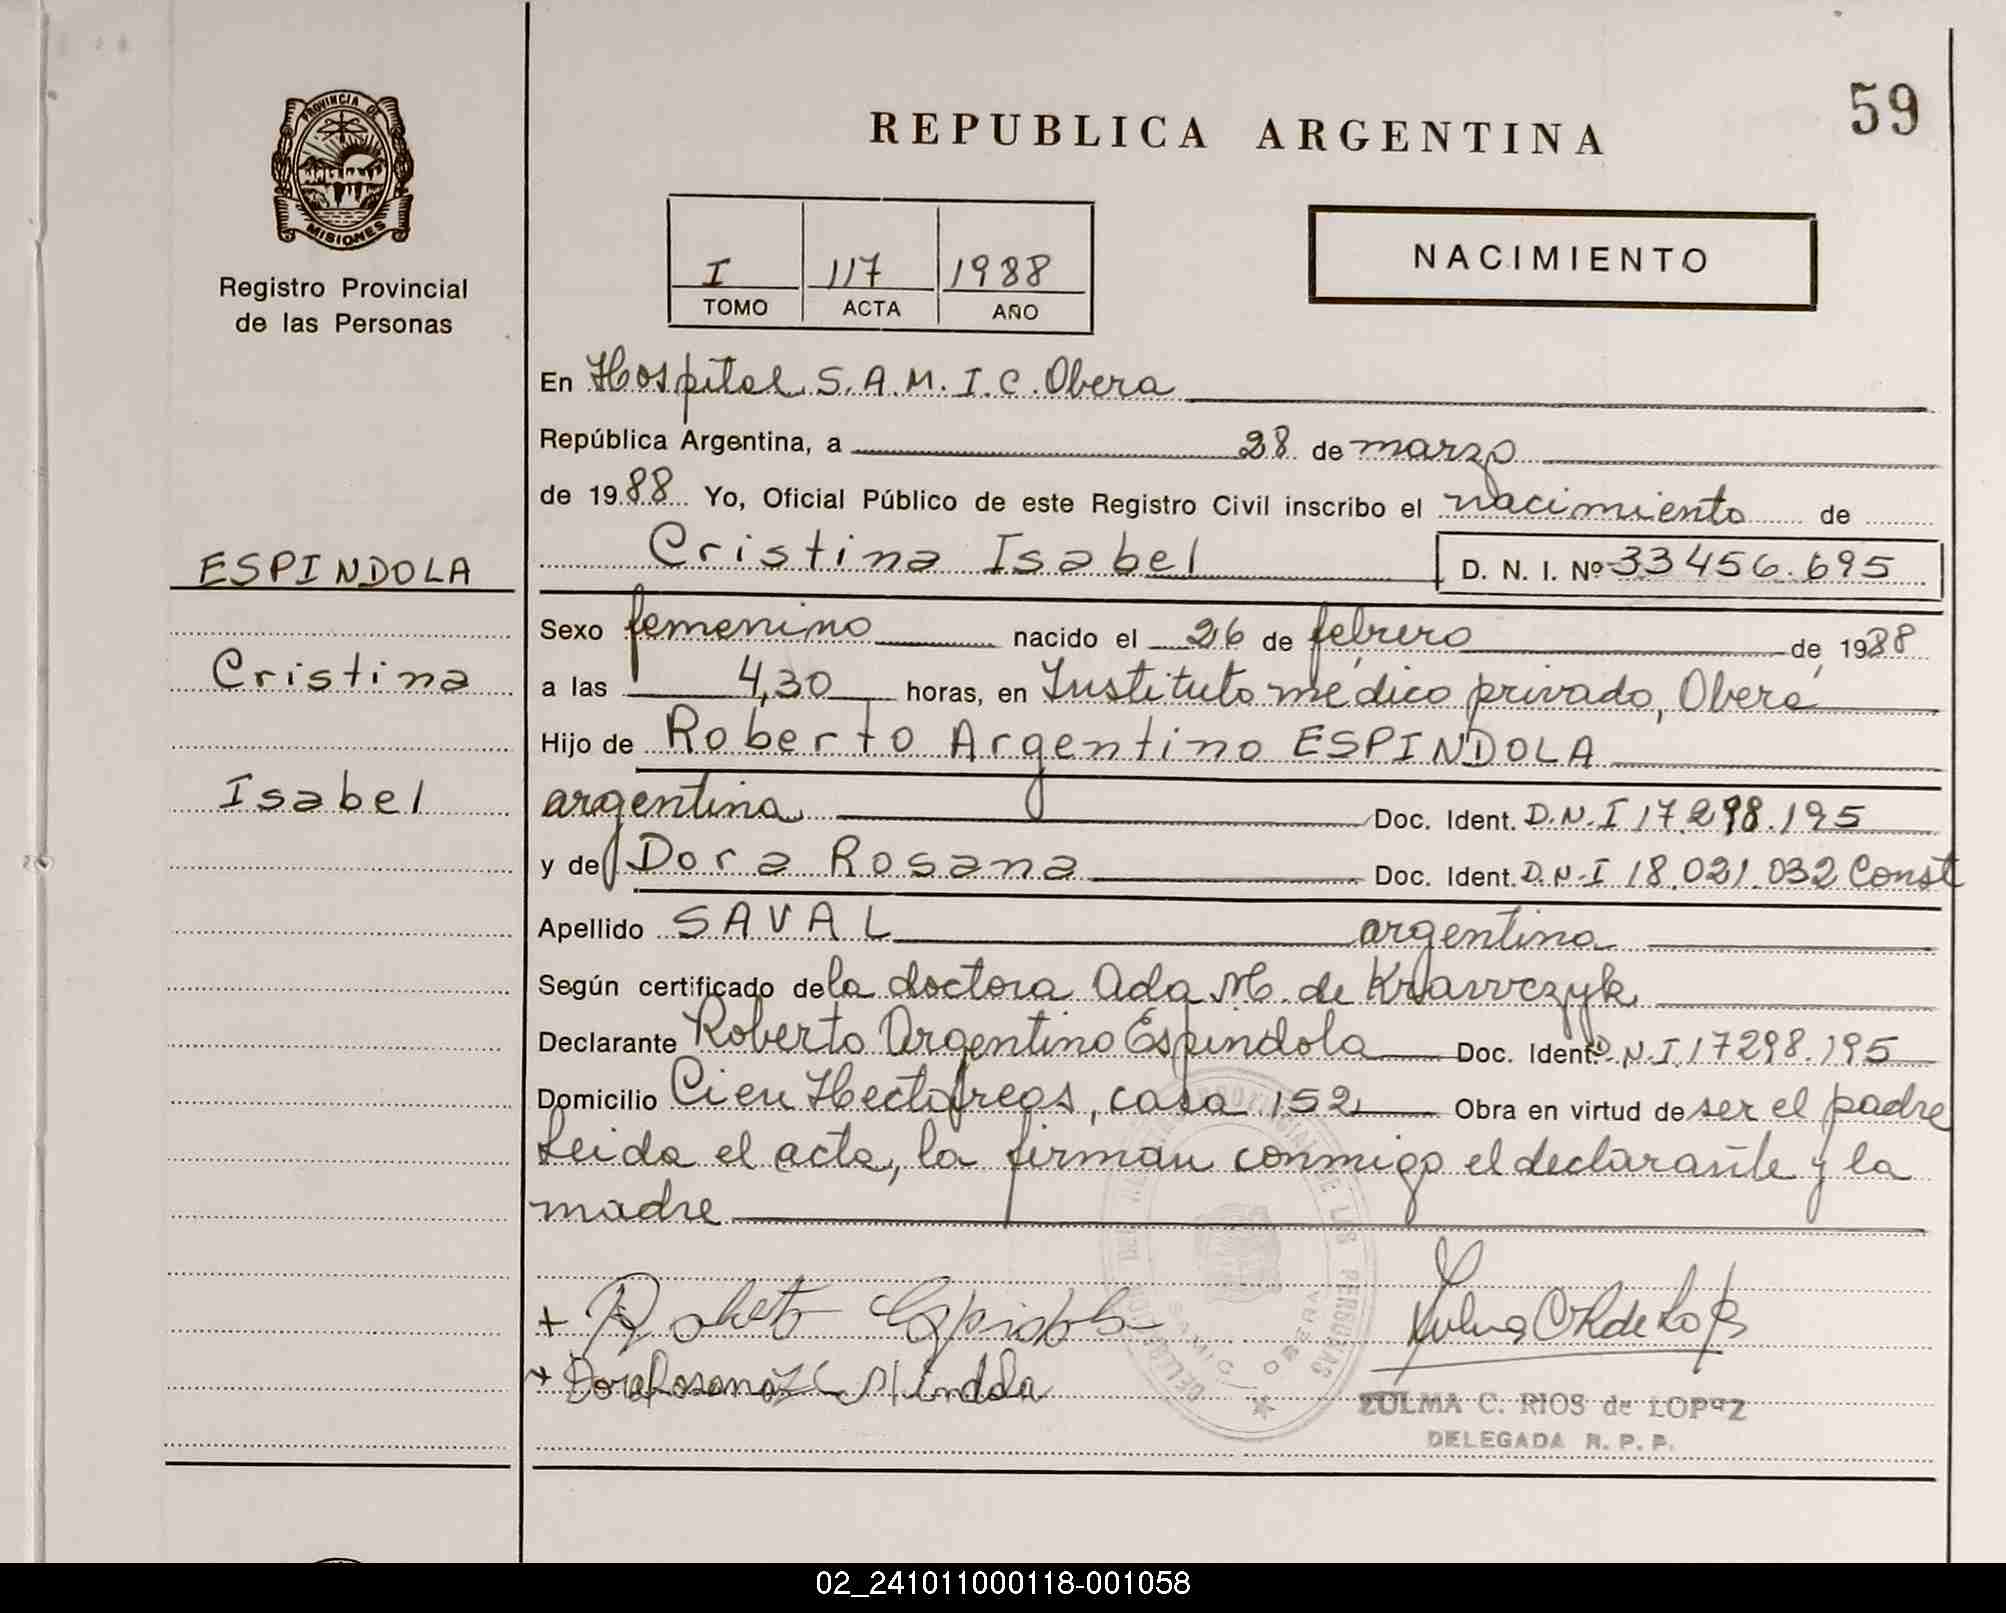 59
PROVINCIA DE
MISIONES
Registro Provincial
de las Personas
REPUBLICA ARGENTINA
I 117 1988
TOMO ACTA AÑO
NACIMIENTO
En Hospital S.A.M.I.C. Obera
República Argentina, a 28 de marzo
de 1988 Yo, Oficial Público de este Registro Civil inscribo el nacimiento de
Cristina Isabel D. N. I. Nº 33456.695
ESPINDOLA
Cristina
Isabel
Sexo femenino nacido el 26 de febrero de 1988
a las 4,30 horas, en Instituto médico privado, Oberá
Hijo de Roberto Argentino ESPINDOLA
argentina Doc. Ident. D.N.I 17.298.195
y de Dora Rosana Doc. Ident. D.N.I 18.021.032 Const
Apellido SAVAL argentina
Según certificado de la doctora Ada M. de Krawczyk
Declarante Roberto Argentino Espindola Doc. Ident. D.N.I. 17298.195
Domicilio Cien Hectáreas, casa 152 Obra en virtud de ser el padre
Leida el acta, la firman conmigo el declarante y la
madre
+ Roberto Espindola
Dora Rosana
ZULMA C. RIOS de LOPEZ
DELEGADA R. P. P.
SAMIC OBERA
02_241011000118-001058